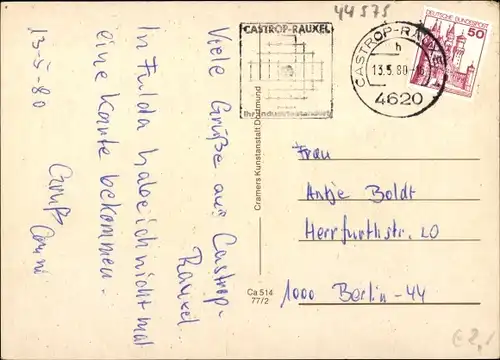 13.5.80
Viele Grüße aus Castrop-
Rauxel.
In Fulda habe ich nicht mal
eine Karte bekommen.
Gruß
Conni
44 575
CASTROP-RAUXEL
Ihr Industriestandort
CASTROP-RAUXEL
h
13.5.80
4620
DEUTSCHE BUNDESPOST
50
Cramers Kunstanstalt Dortmund
Ca 514
77/2
Frau
Antje Boldt
Herrfurthstr. 20
1000 Berlin-44